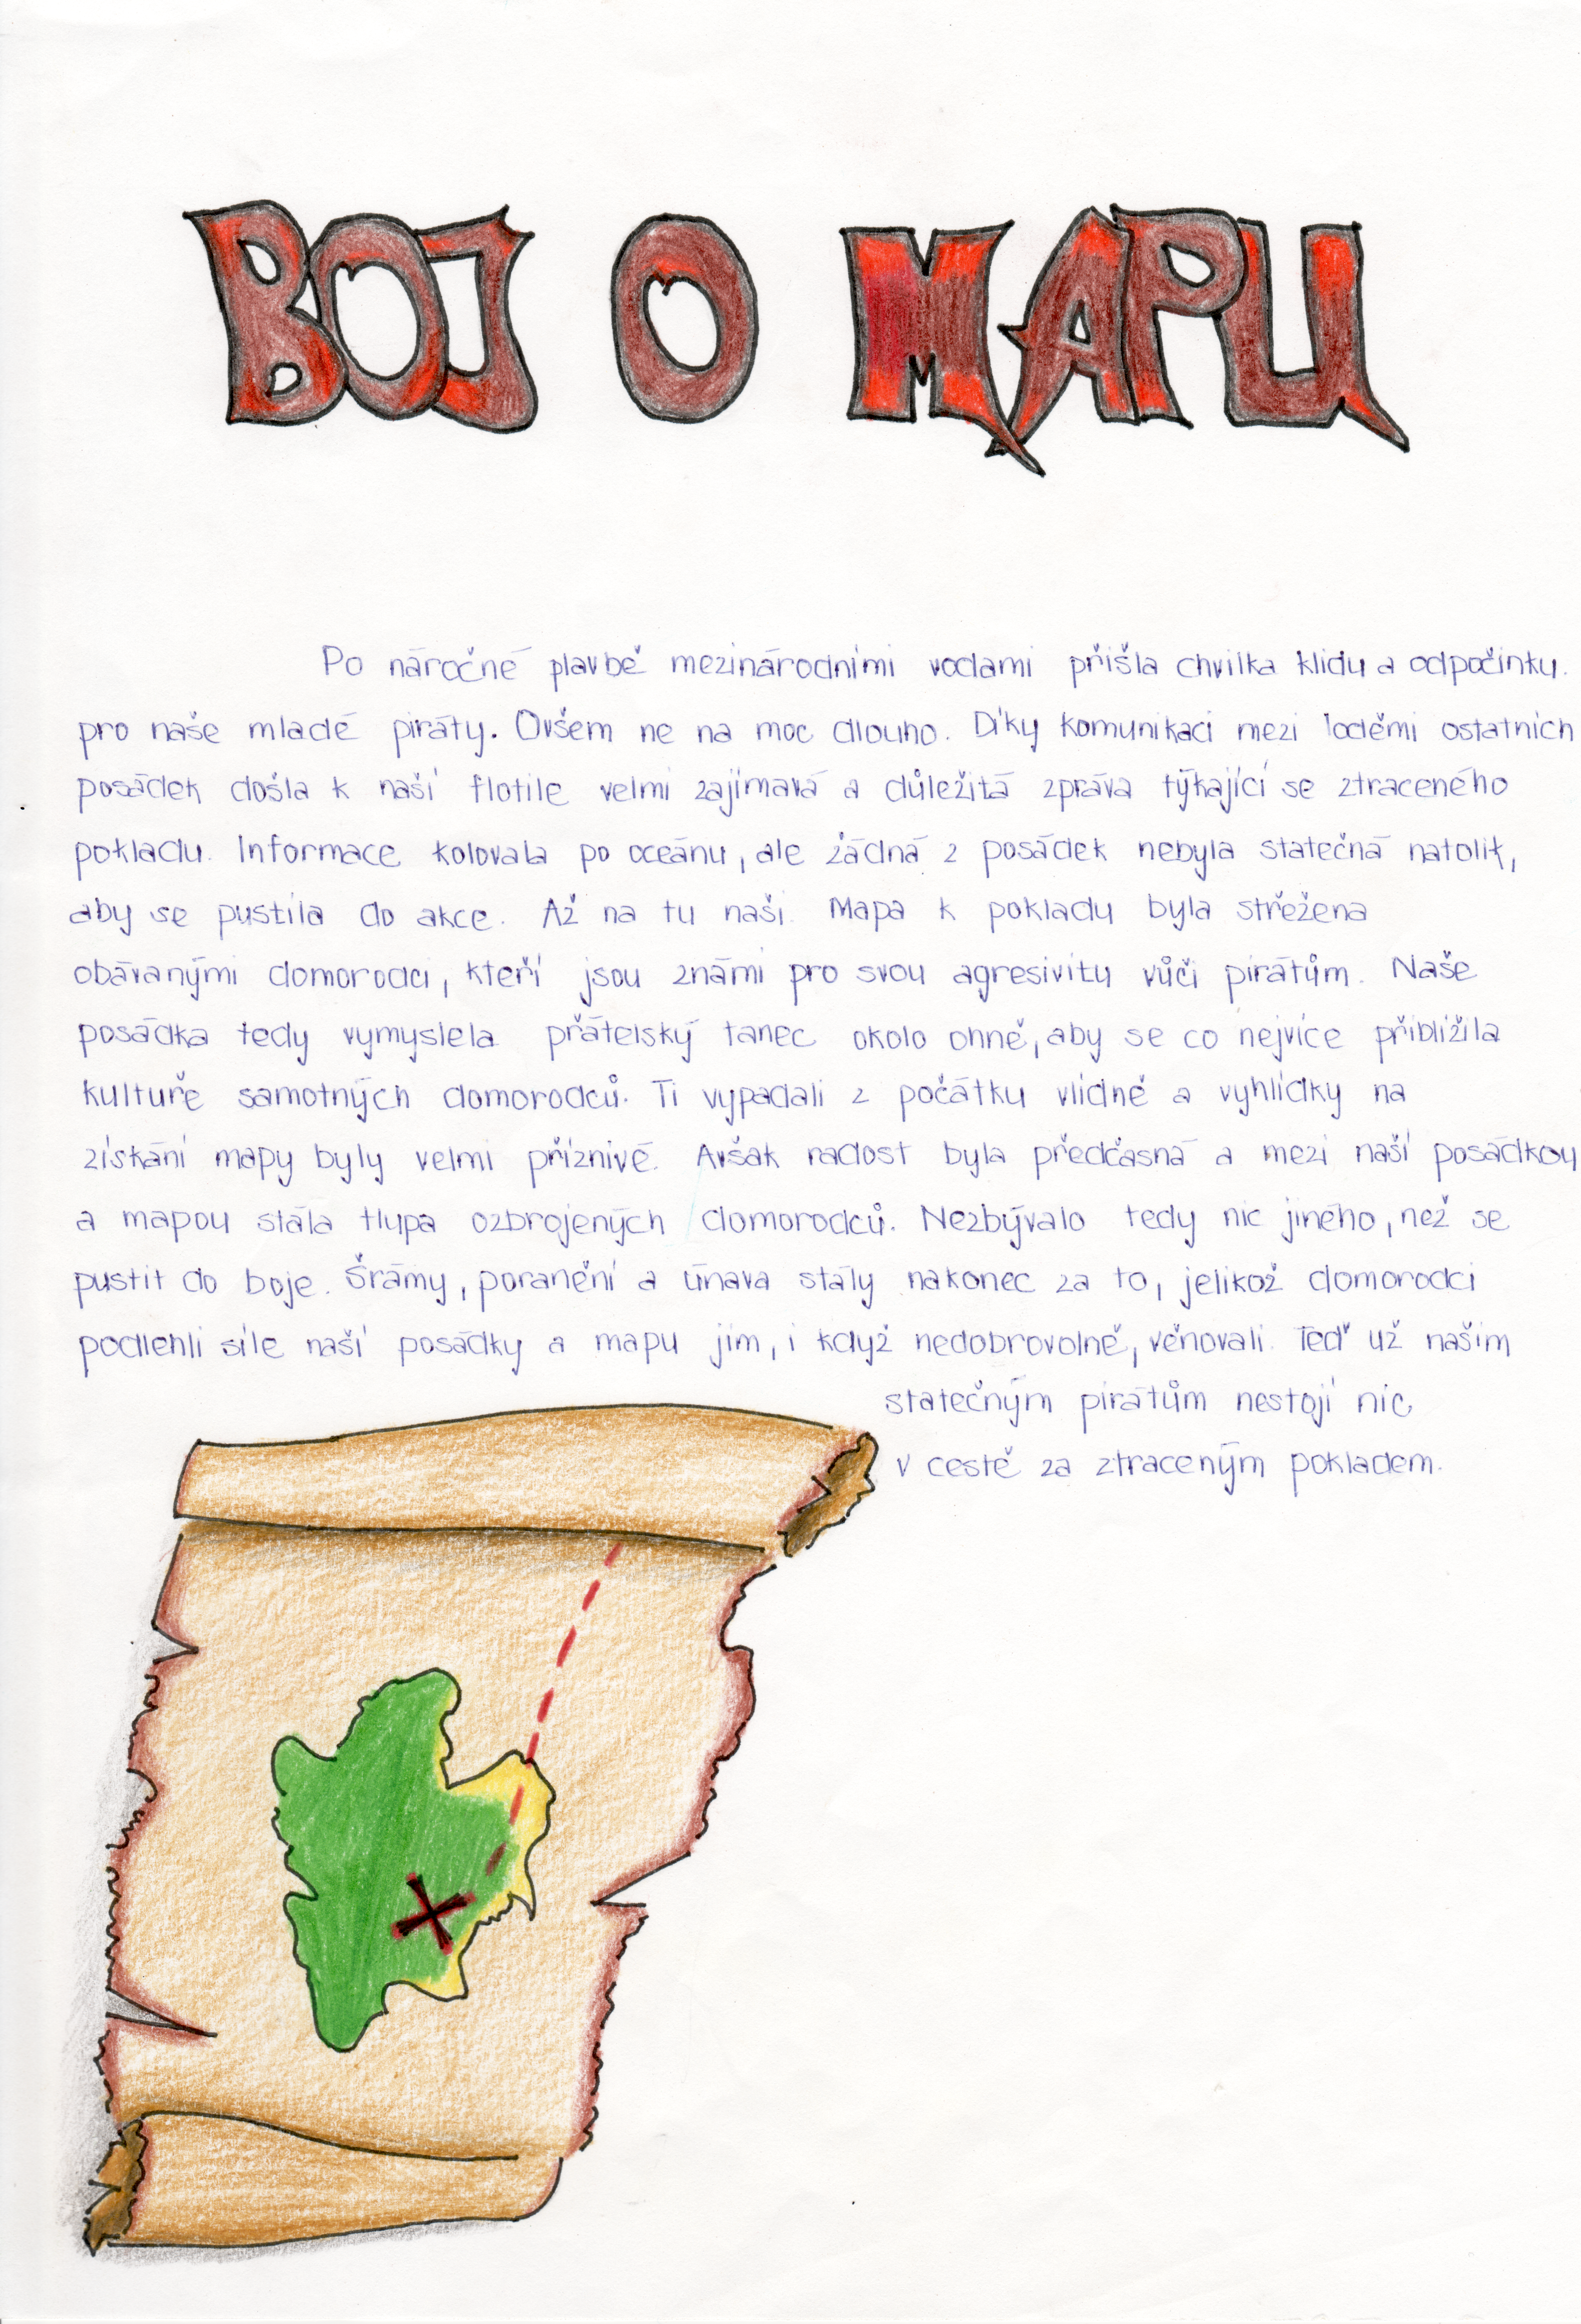 BOJ O MAPU
Po náročné plavbě mezinárodními vodami přišla chvilka klidu a odpočinku.
pro naše mladé piráty. Ovšem ne na moc dlouho. Díky komunikaci mezi loděmi ostatních
posádek došla k naší flotile velmi zajímavá a důležitá zpráva týkající se ztraceného
pokladu. Informace kolovala po oceánu, ale žádná z posádek nebyla statečná natolik,
aby se pustila do akce. Až na tu naši. Mapa k pokladu byla střežena
obávanými domorodci, kteří jsou známi pro svou agresivitu vůči pirátům. Naše
posádka tedy vymyslela přátelský tanec okolo ohně, aby se co nejvíce přiblížila
kultuře samotných domorodců. Ti vypadali z počátku vlídně a vyhlídky na
získání mapy byly velmi příznivé. Avšak radost byla předčasná a mezi naší posádkou
a mapou stála tlupa ozbrojených domorodců. Nezbývalo tedy nic jiného, než se
pustit do boje. Šrámy, poranění a únava stály nakonec za to, jelikož domorodci
podlehli síle naší posádky a mapu jim, i když nedobrovolně, věnovali. Teď už našim
statečným pirátům nestojí nic
v cestě za ztraceným pokladem.